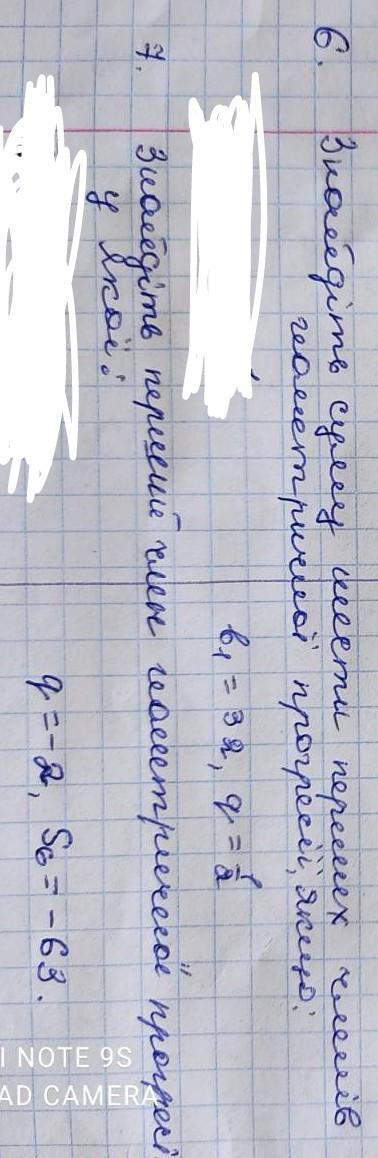 6. Знайдіть суму шести перших членів
геометричної прогресії, якщо:
b₁ = 32, q = 1/2
7. Знайдіть перший член геометричної прогресі
у якої:
q = -2, S₆ = -63.
I NOTE 9S
AD CAMERA